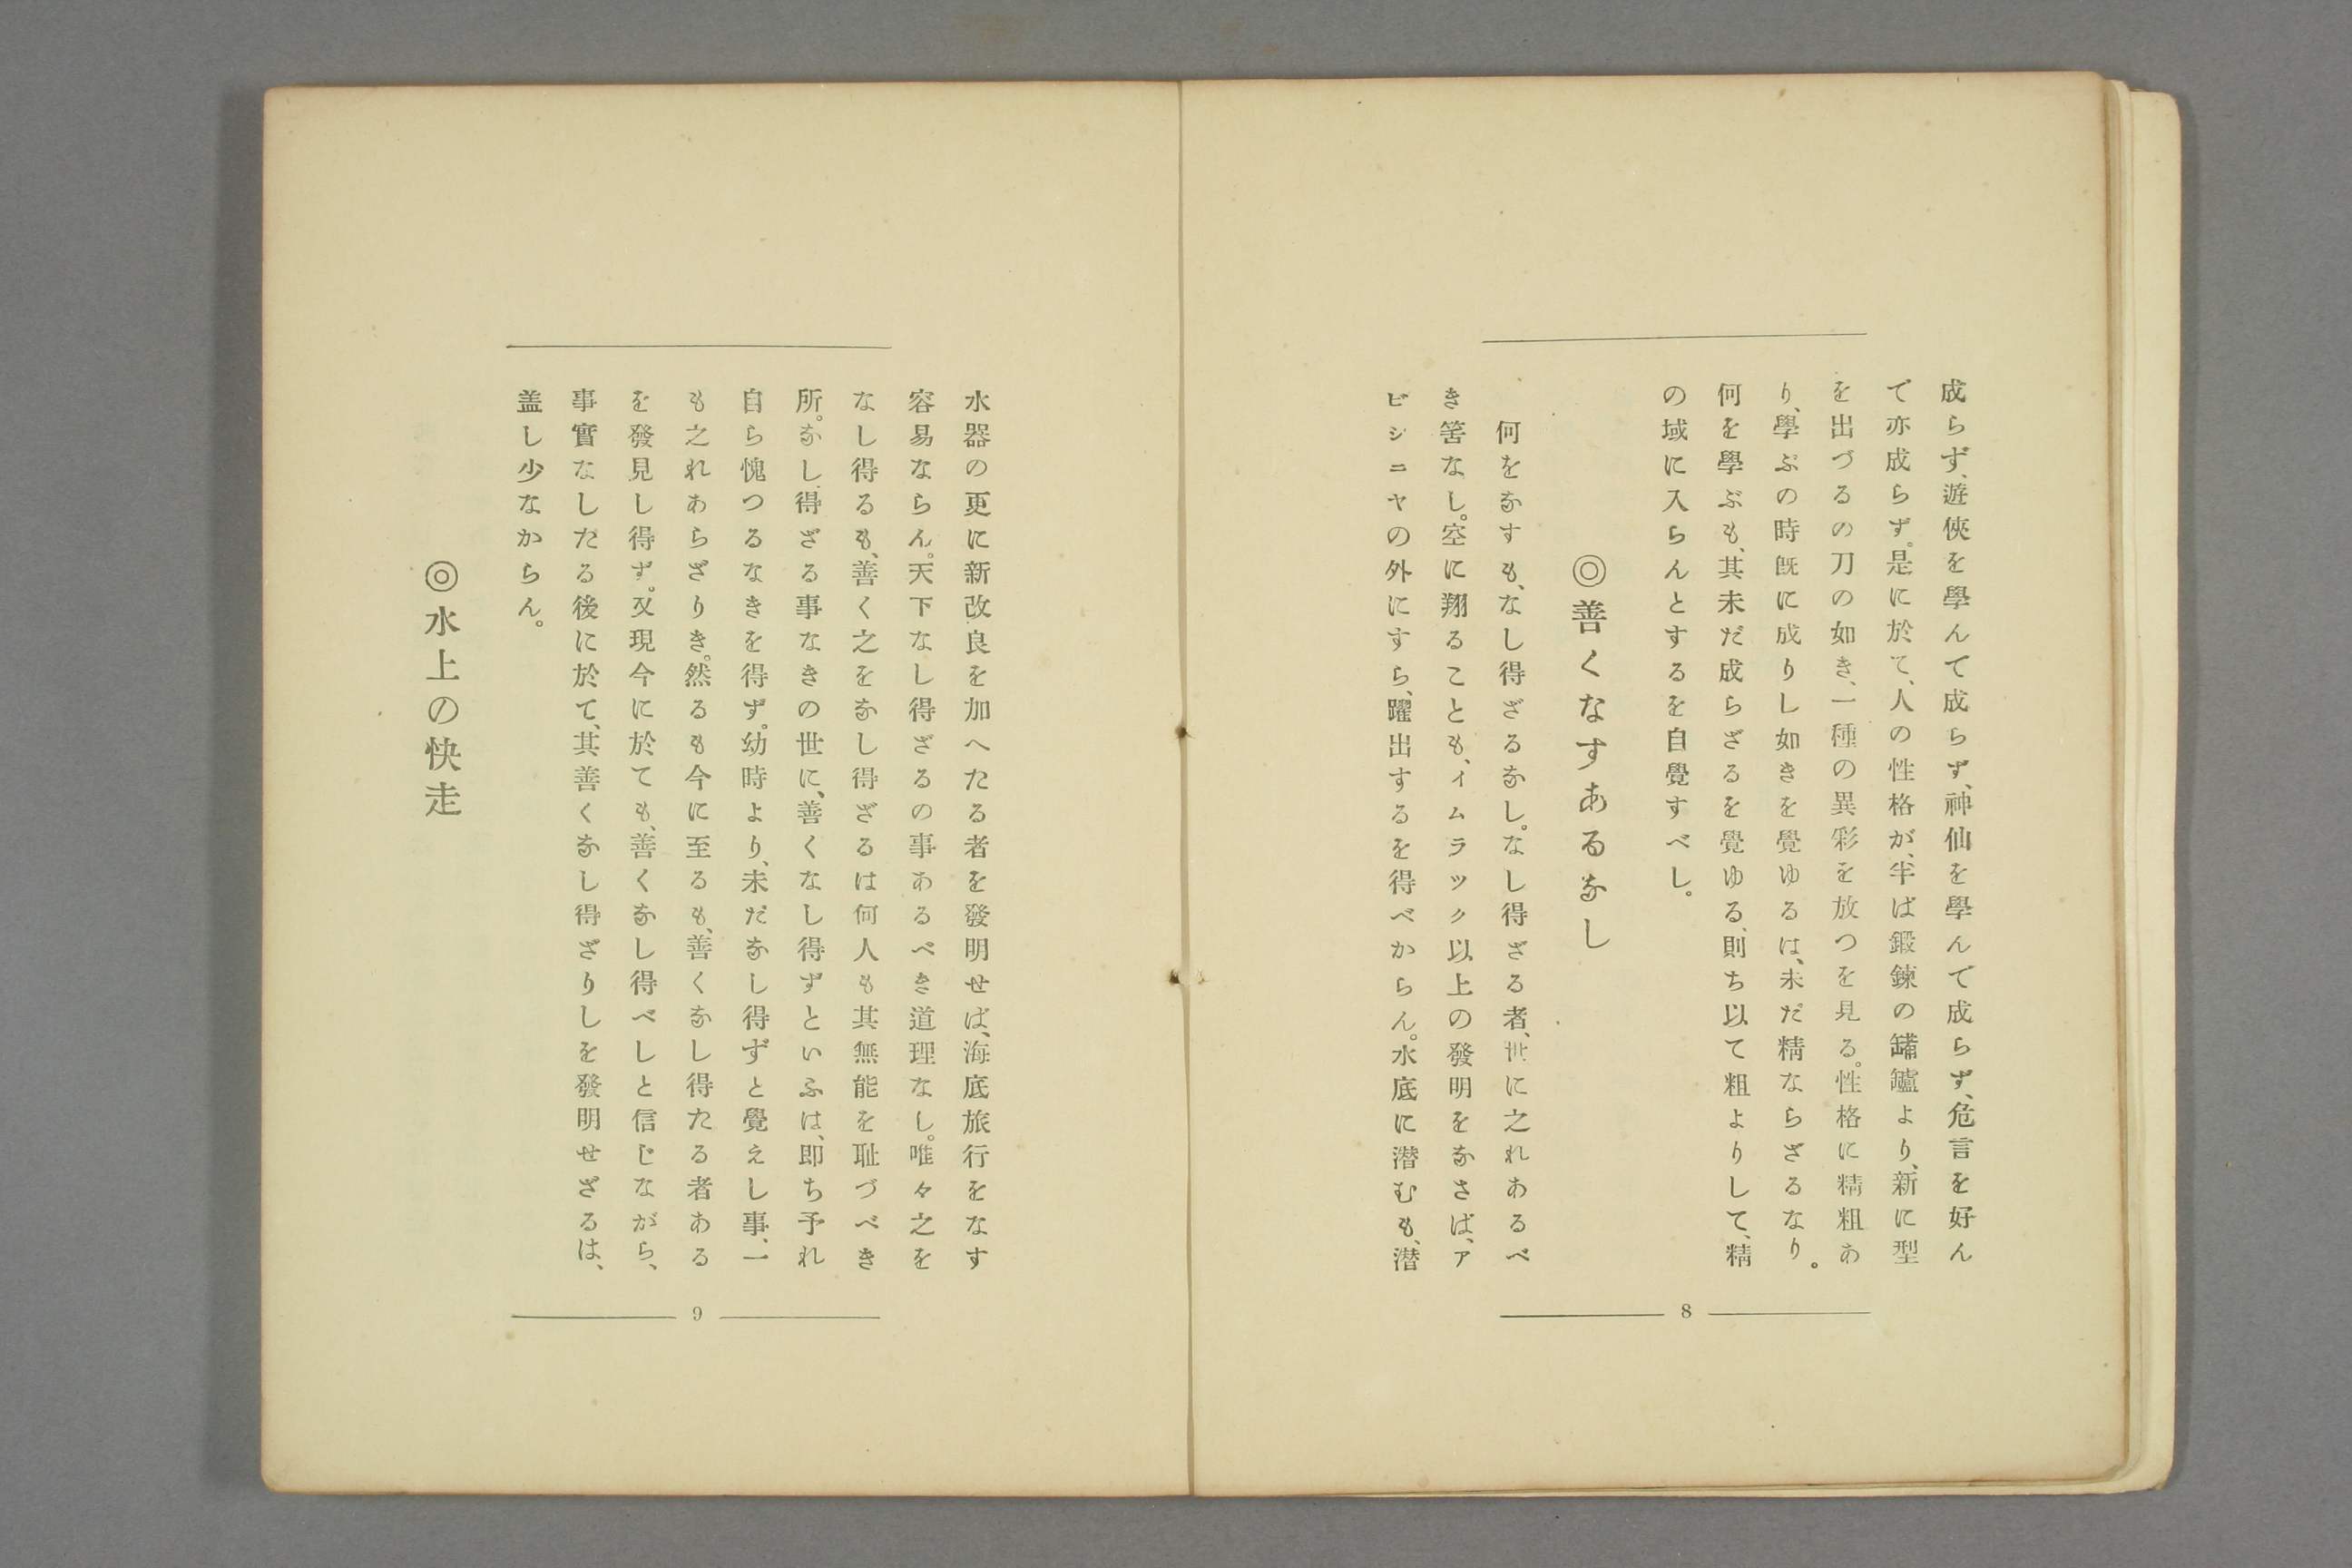 成らず、遊俠を學んて成らず、神仙を學んで成らず、危言を好ん
で亦成らず。是に於て、人の性格が、半ば鍛鍊の罏鑪より、新に型
を出づるの刀の如き、一種の異彩を放つを見る。性格に精粗あ
り、學ぶの時既に成りし如きを覺ゆるは、未だ精ならざるなり。
何を學ぶも、其未だ成らざるを覺ゆる、則ち以て粗よりして、精
の域に入らんとするを自覺すべし。
◎善くなすあるなし
何をなすも、なし得ざるなし。なし得ざる者、世に之れあるべ
き筈なし。空に翔ることも、イムラック以上の發明をなさば、ア
ビジニヤの外にすら、躍出するを得べからん。水底に潜むも、潜
8
水器の更に新改良を加へたる者を發明せば、海底旅行をなす
容易ならん。天下なし得ざるの事あるべき道理なし。唯々之を
なし得るも、善く之をなし得ざるは何人も其無能を耻づべき
所。なし得ざる事なきの世に、善くなし得ずといふは、即ち予れ
自ら愧つるなきを得ず。幼時より、未だなし得ずと覺えし事、一
も之れあらざりき。然るも今に至るも、善くなし得たる者ある
を發見し得ず。又現今に於ても、善くなし得べしと信じながら、
事實なしたる後に於て、其善くなし得ざりしを發明せざるは、
盖し少なからん。
◎水上の快走
9